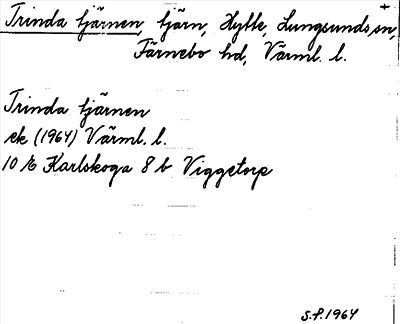 Trinda tjärnen, tjärn, Hytte, Lungsunds sn,
Färnebo hd, Värml. l.
Trinda tjärnen
ek (1964) Värml. l.
10 E Karlskoga 8 b Viggetorp
S.P. 1964